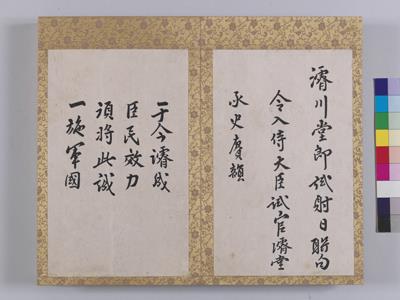 濬川堂即試射日聯句
令入侍大臣試官濬堂
承史賡韻
于今濬成
臣民效力
須將此誠
一施軍國